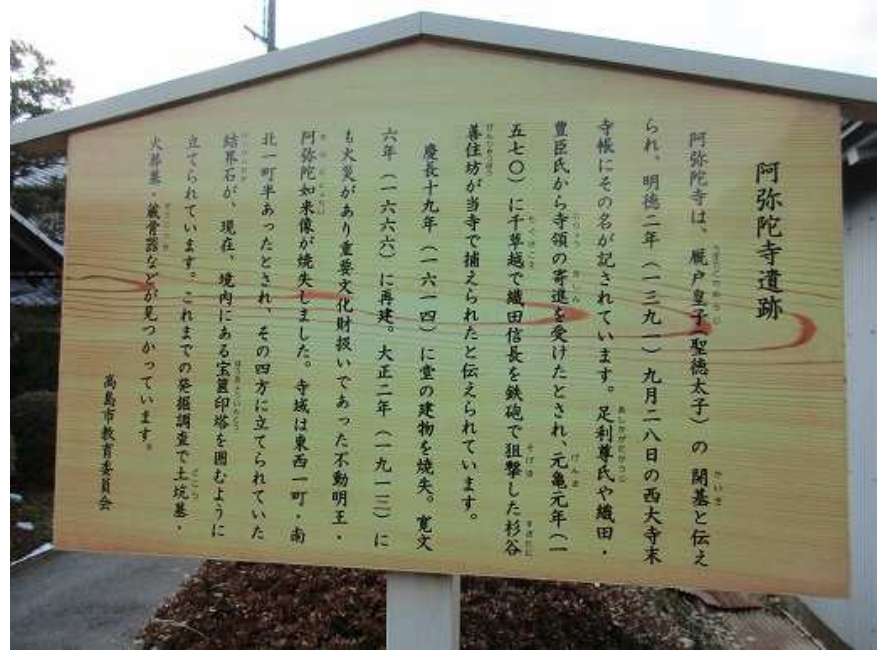 阿弥陀寺遺跡
阿弥陀寺は、厩戸皇子(聖徳太子)の開基と伝え
られ、明徳二年(一三九一)九月二八日の西大寺末
寺帳にその名が記されています。足利尊氏や織田・
豊臣氏から寺領の寄進を受けたとされ、元亀元年(一
五七〇)に千草越で織田信長を鉄砲で狙撃した杉谷
善住坊が当寺で捕えられたと伝えられています。
慶長十九年(一六一四)に堂の建物を焼失。寛文
六年(一六六六)に再建。大正二年(一九一三)に
も火災があり重要文化財扱いであった不動明王・
阿弥陀如来像が焼失しました。寺域は東西一町・南
北一町半あったとされ、その四方に立てられていた
結界石が、現在、境内にある宝篋印塔を囲むように
立てられています。これまでの発掘調査で土坑墓・
火葬墓・蔵骨器などが見つかっています。
高島市教育委員会